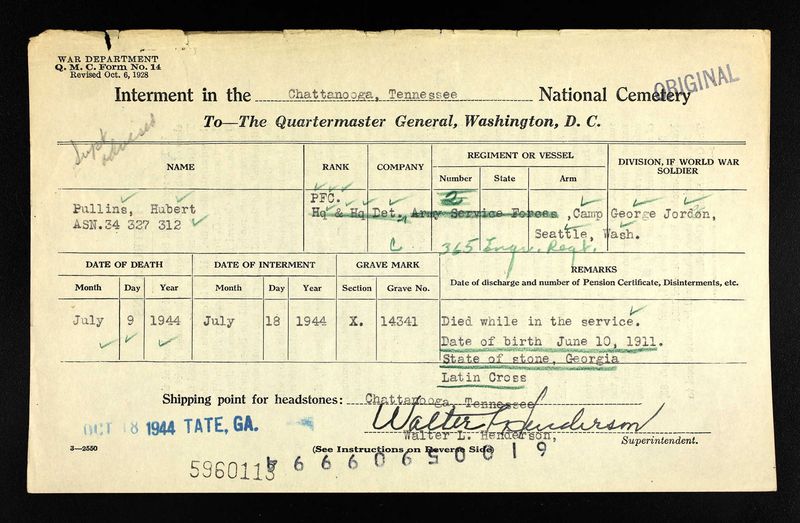 WAR DEPARTMENT
Q. M. C. Form No. 14
Revised Oct. 6, 1928
ORIGINAL
Interment in the Chattanooga, Tennessee National Cemetery
To—The Quartermaster General, Washington, D. C.
Supt advised
NAME RANK COMPANY REGIMENT OR VESSEL DIVISION, IF WORLD WAR SOLDIER
Number State Arm
PFC. 2
Pullins, Hubert Hq & Hq Det., Army Service Forces ,Camp George Jordon,
ASN.34 327 312 Seattle, Wash.
C 365 Engr. Regt.
DATE OF DEATH DATE OF INTERMENT GRAVE MARK REMARKS
Month Day Year Month Day Year Section Grave No. Date of discharge and number of Pension Certificate, Disinterments, etc.
July 9 1944 July 18 1944 X. 14341 Died while in the service.
Date of birth June 10, 1911.
State of stone, Georgia
Latin Cross
Shipping point for headstones: Chattanooga, Tennessee
OCT 18 1944 TATE, GA. Walter L. Henderson
Walter L. Henderson, Superintendent.
3—2550 (See Instructions on Reverse Side)
5960113